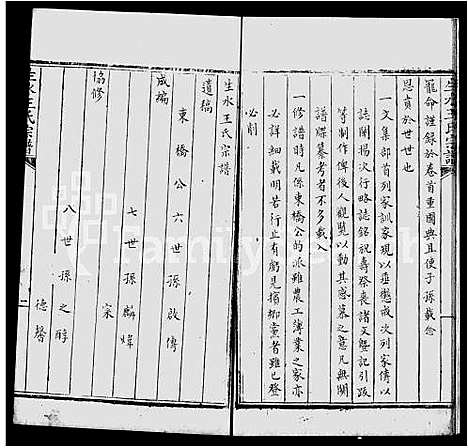 寵命謹錄於卷首重國典且使子孫載念
恩貢於世世也
一文集部首列家訓家規以垂懲戒次列家傳以
誌闡揚次行略誌銘祝壽祭喪諸文槩記引跋
等制作俾後人觀覽以動其感慕之意凡無關
譜牒纂考者不多載入
一修譜時凡係東橋公的派雖農工薄業之家亦
必詳細載明若行止有虧見擯鄉黨者雖已登
必削
生水王氏宗譜
遺稿
東橋公六世孫啟傳
成編
七世孫麟煒
宋
協修
八世孫之醇
德馨
生水王氏宗譜
二